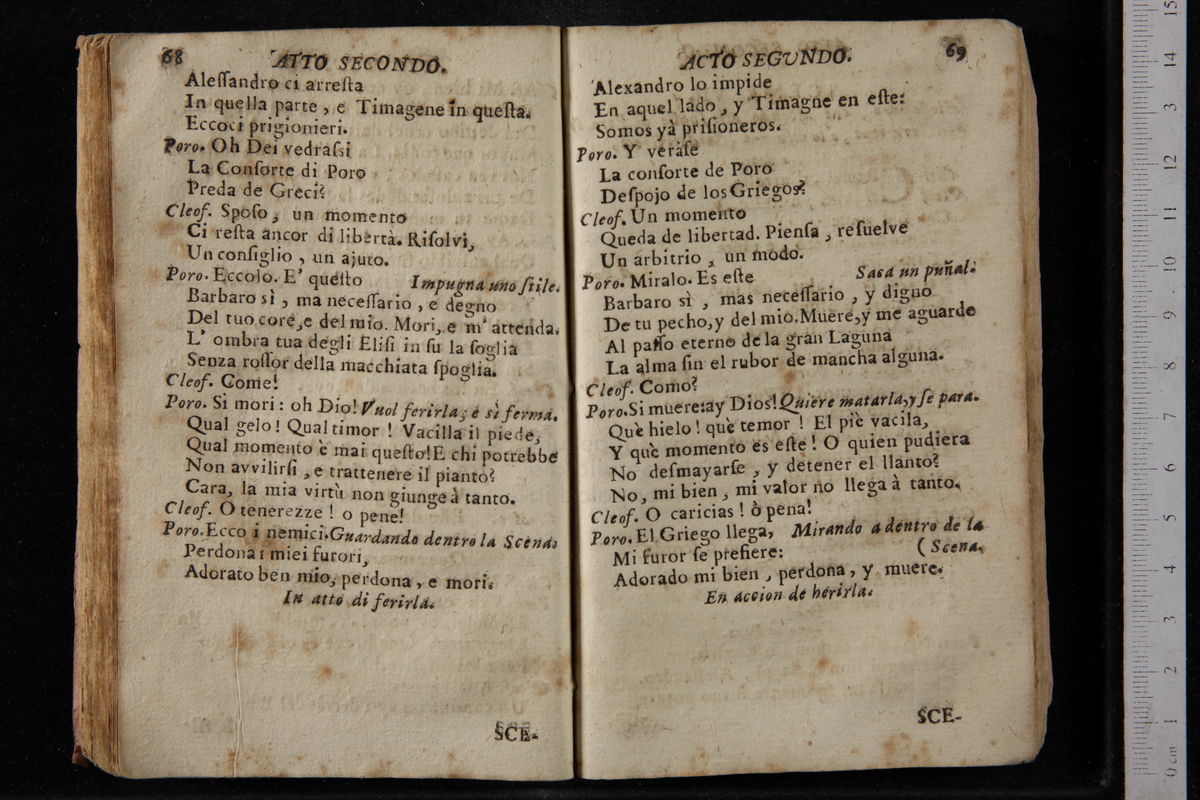 68 ATTO SECONDO.
Aleſſandro ci arreſta
In quella parte, e Timagene in queſta.
Eccoci prigionieri.
Poro. Oh Dei vedraſsi
La Conſorte di Poro
Preda de Greci?
Cleof. Spoſo, un momento
Ci reſta ancor di libertà. Riſolvi,
Un conſiglio, un ajuto.
Poro. Eccolo. E' queſto Impugna uno ſtile.
Barbaro sì, ma neceſſario, e degno
Del tuo core, e del mio. Mori, e m' attenda.
L' ombra tua degli Eliſi in ſu la ſoglia
Senza roſſor della macchiata ſpoglia.
Cleof. Come!
Poro. Si mori: oh Dio! Vuol ferirla, e sì ferma.
Qual gelo! Qual timor! Vacilla il piede,
Qual momento è mai queſto! E chi potrebbe
Non avvilirſi, e trattenere il pianto?
Cara, la mia virtù non giunge à tanto.
Cleof. O tenerezze! o pene!
Poro. Ecco i nemici. Guardando dentro la Scena.
Perdona i miei furori,
Adorato ben mio, perdona, e mori.
In atto di ferirla.
SCE-
ACTO SEGUNDO. 69
Alexandro lo impide
En aquel lado, y Timagne en eſte:
Somos yà priſioneros.
Poro. Y veràſe
La conſorte de Poro
Deſpojo de los Griegos?
Cleof. Un momento
Queda de libertad. Pienſa, reſuelve
Un arbitrio, un modo.
Poro. Miralo. Es eſte Saca un puñal.
Barbaro sì, mas neceſſario, y digno
De tu pecho, y del mio. Muere, y me aguarde
Al paſſo eterno de la gran Laguna
La alma ſin el rubor de mancha alguna.
Cleof. Como?
Poro. Si muere: ay Dios! Quiere matarla, y ſe para.
Què hielo! què temor! El piè vacila,
Y què momento es eſte! O quien pudiera
No deſmayarſe, y detener el llanto?
No, mi bien, mi valor no llega à tanto.
Cleof. O caricias! ò pena!
Poro. El Griego llega, Mirando a dentro de la
Mi furor ſe prefiere: (Scena.
Adorado mi bien, perdona, y muere.
En accion de herirla.
SCE-